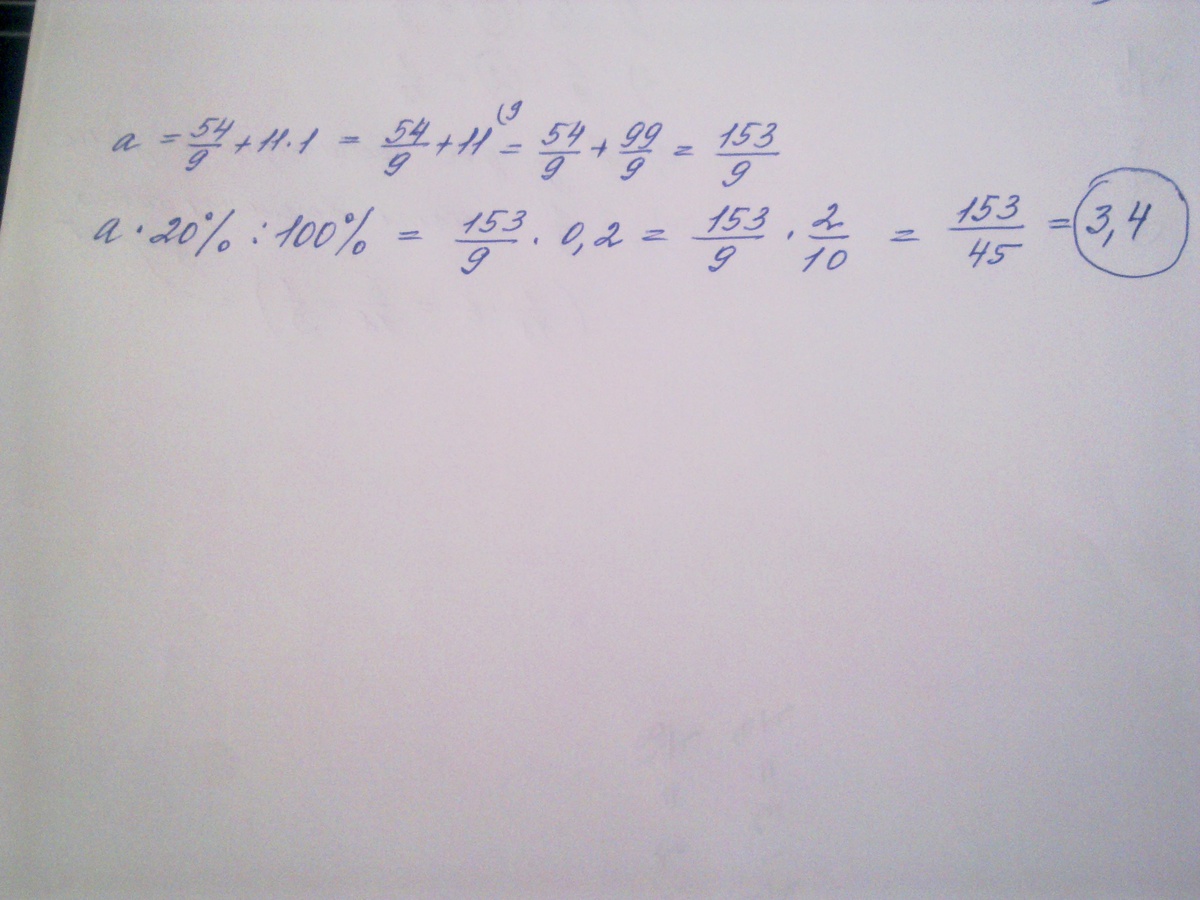 a = 54/9 + 11·1 = 54/9 + 11 (9 = 54/9 + 99/9 = 153/9
a · 20% : 100% = 153/9 · 0,2 = 153/9 · 2/10 = 153/45 = 3,4